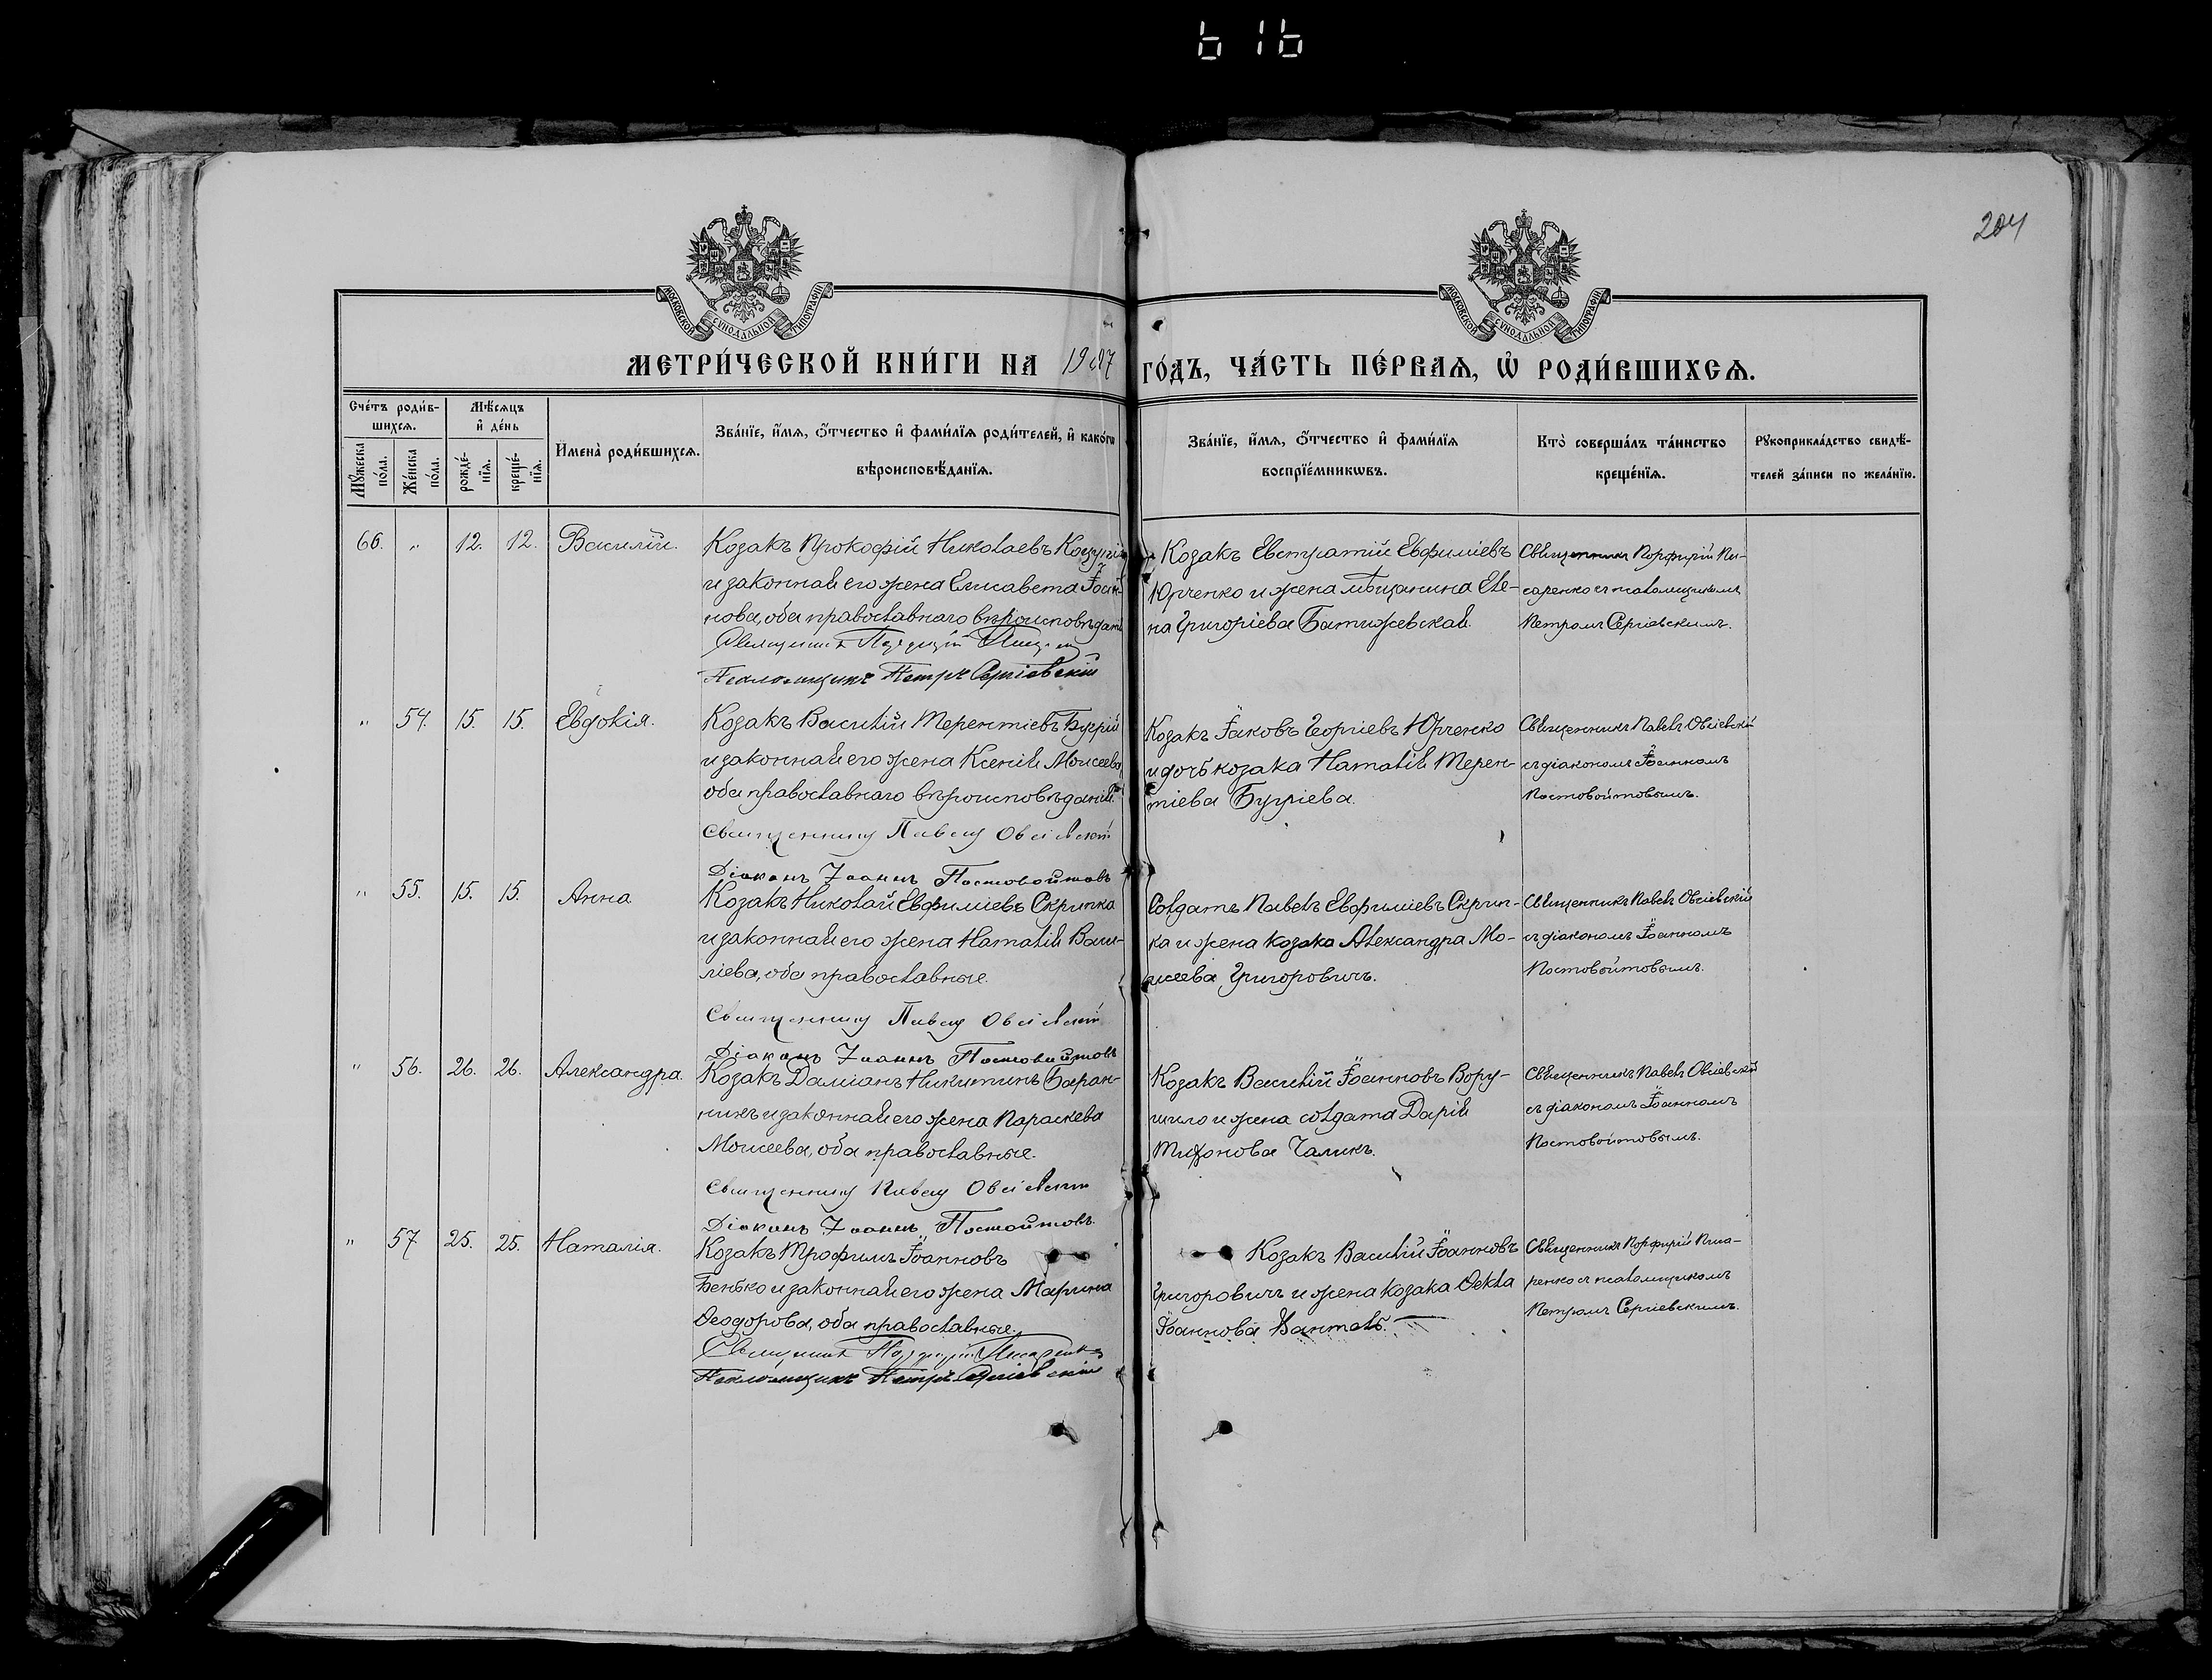 616
204
МОСКОВСКОЙ СѴНОДАЛЬНОЙ ТИПОГРАФІИ
МОСКОВСКОЙ СѴНОДАЛЬНОЙ ТИПОГРАФІИ
МЕТРИ́ЧЕСКОЙ КНИ́ГИ НА 1907 ГО́ДЪ, ЧА́СТЬ ПЕ́РВАѦ, Ѡ҆ РОДИ́ВШИХСѦ.
Сче́тъ роди́в-
шихсѧ.
Мꙋ́жеска по́ла.
Же́нска по́ла.
Мѣ́сѧцъ
и҆ де́нь
рожде́-
нїѧ.
креще́-
нїѧ.
И҆мена̀ роди́вшихсѧ.
Зва́нїе, и҆́мѧ, ѻ҆́тчество и҆ фами́лїѧ роди́телей, и҆ како́гѡ
вѣроисповѣ́данїѧ.
Зва́нїе, и҆́мѧ, ѻ҆́тчество и҆ фами́лїѧ
воспрїе́мникѡвъ.
Кто̀ соверша́лъ та́инство
креще́нїѧ.
Рꙋкоприкла́дство свидѣ́-
телей за́писи по жела́нїю.
66. " 12. 12. Василій.
Козакъ Прокофій Николаевъ
и законная его жена Елисавета Іоан-
нова, оба православнаго вѣроисповѣданія
Священникъ Порфирій Писаренко
Псаломщикъ Петръ Сергіевскій
Козакъ Евстратій Евфиміевъ
Юрченко и жена мѣщанина Еле-
на Григоріева Батижевская.
Священникъ Порфирій Пи-
саренко съ псаломщикомъ
Петромъ Сергіевскимъ.
" 54. 15. 15. Евдокія.
Козакъ Василій Терентіевъ Бугрій
и законная его жена Ксенія Моисеева,
оба православнаго вѣроисповѣданія.
Священникъ Павелъ Овсіевскій
Діаконъ Іоаннъ Постовойтовъ
Козакъ Іаковъ Георгіевъ Юрченко
и дочь козака Наталія Терен-
тіева Бугріева.
Священникъ Павелъ Овсіевскій
съ діакономъ Іоанномъ
Постовойтовымъ.
" 55. 15. 15. Анна
Козакъ Николай Евфиміевъ Скрипка
и законная его жена Наталія Васи-
ліева, оба православные.
Священникъ Павелъ Овсіевскій
Діаконъ Іоаннъ Постовойтовъ
Солдатъ Павелъ Евфиміевъ Скрип-
ка и жена козака Александра Мо-
исеева Григоровичъ.
Священникъ Павелъ Овсіевскій
съ діакономъ Іоанномъ
Постовойтовымъ.
" 56. 26. 26. Александра.
Козакъ Даміанъ Никитинъ Баран-
никъ и законная его жена Параскева
Моисеева, оба православные.
Священникъ Павелъ Овсіевскій
Діаконъ Іоаннъ Постойтовъ.
Козакъ Василій Іоанновъ Вору-
шило и жена солдата Дарія
Тихонова Чаликъ.
Священникъ Павелъ Овсіевскій
съ діакономъ Іоанномъ
Постовойтовымъ.
" 57 25. 25. Наталія.
Козакъ Трофимъ Іоанновъ
Бенько и законная его жена Марина
Ѳеодорова, оба православные.
Священникъ Порфирій Писаренко
Псаломщикъ Петръ Сергіевскій
Козакъ Василій Іоанновъ
Григоровичъ и жена козака Ѳекла
Іоаннова
Священникъ Порфирій Писа-
ренко съ псаломщикомъ
Петромъ Сергіевскимъ.